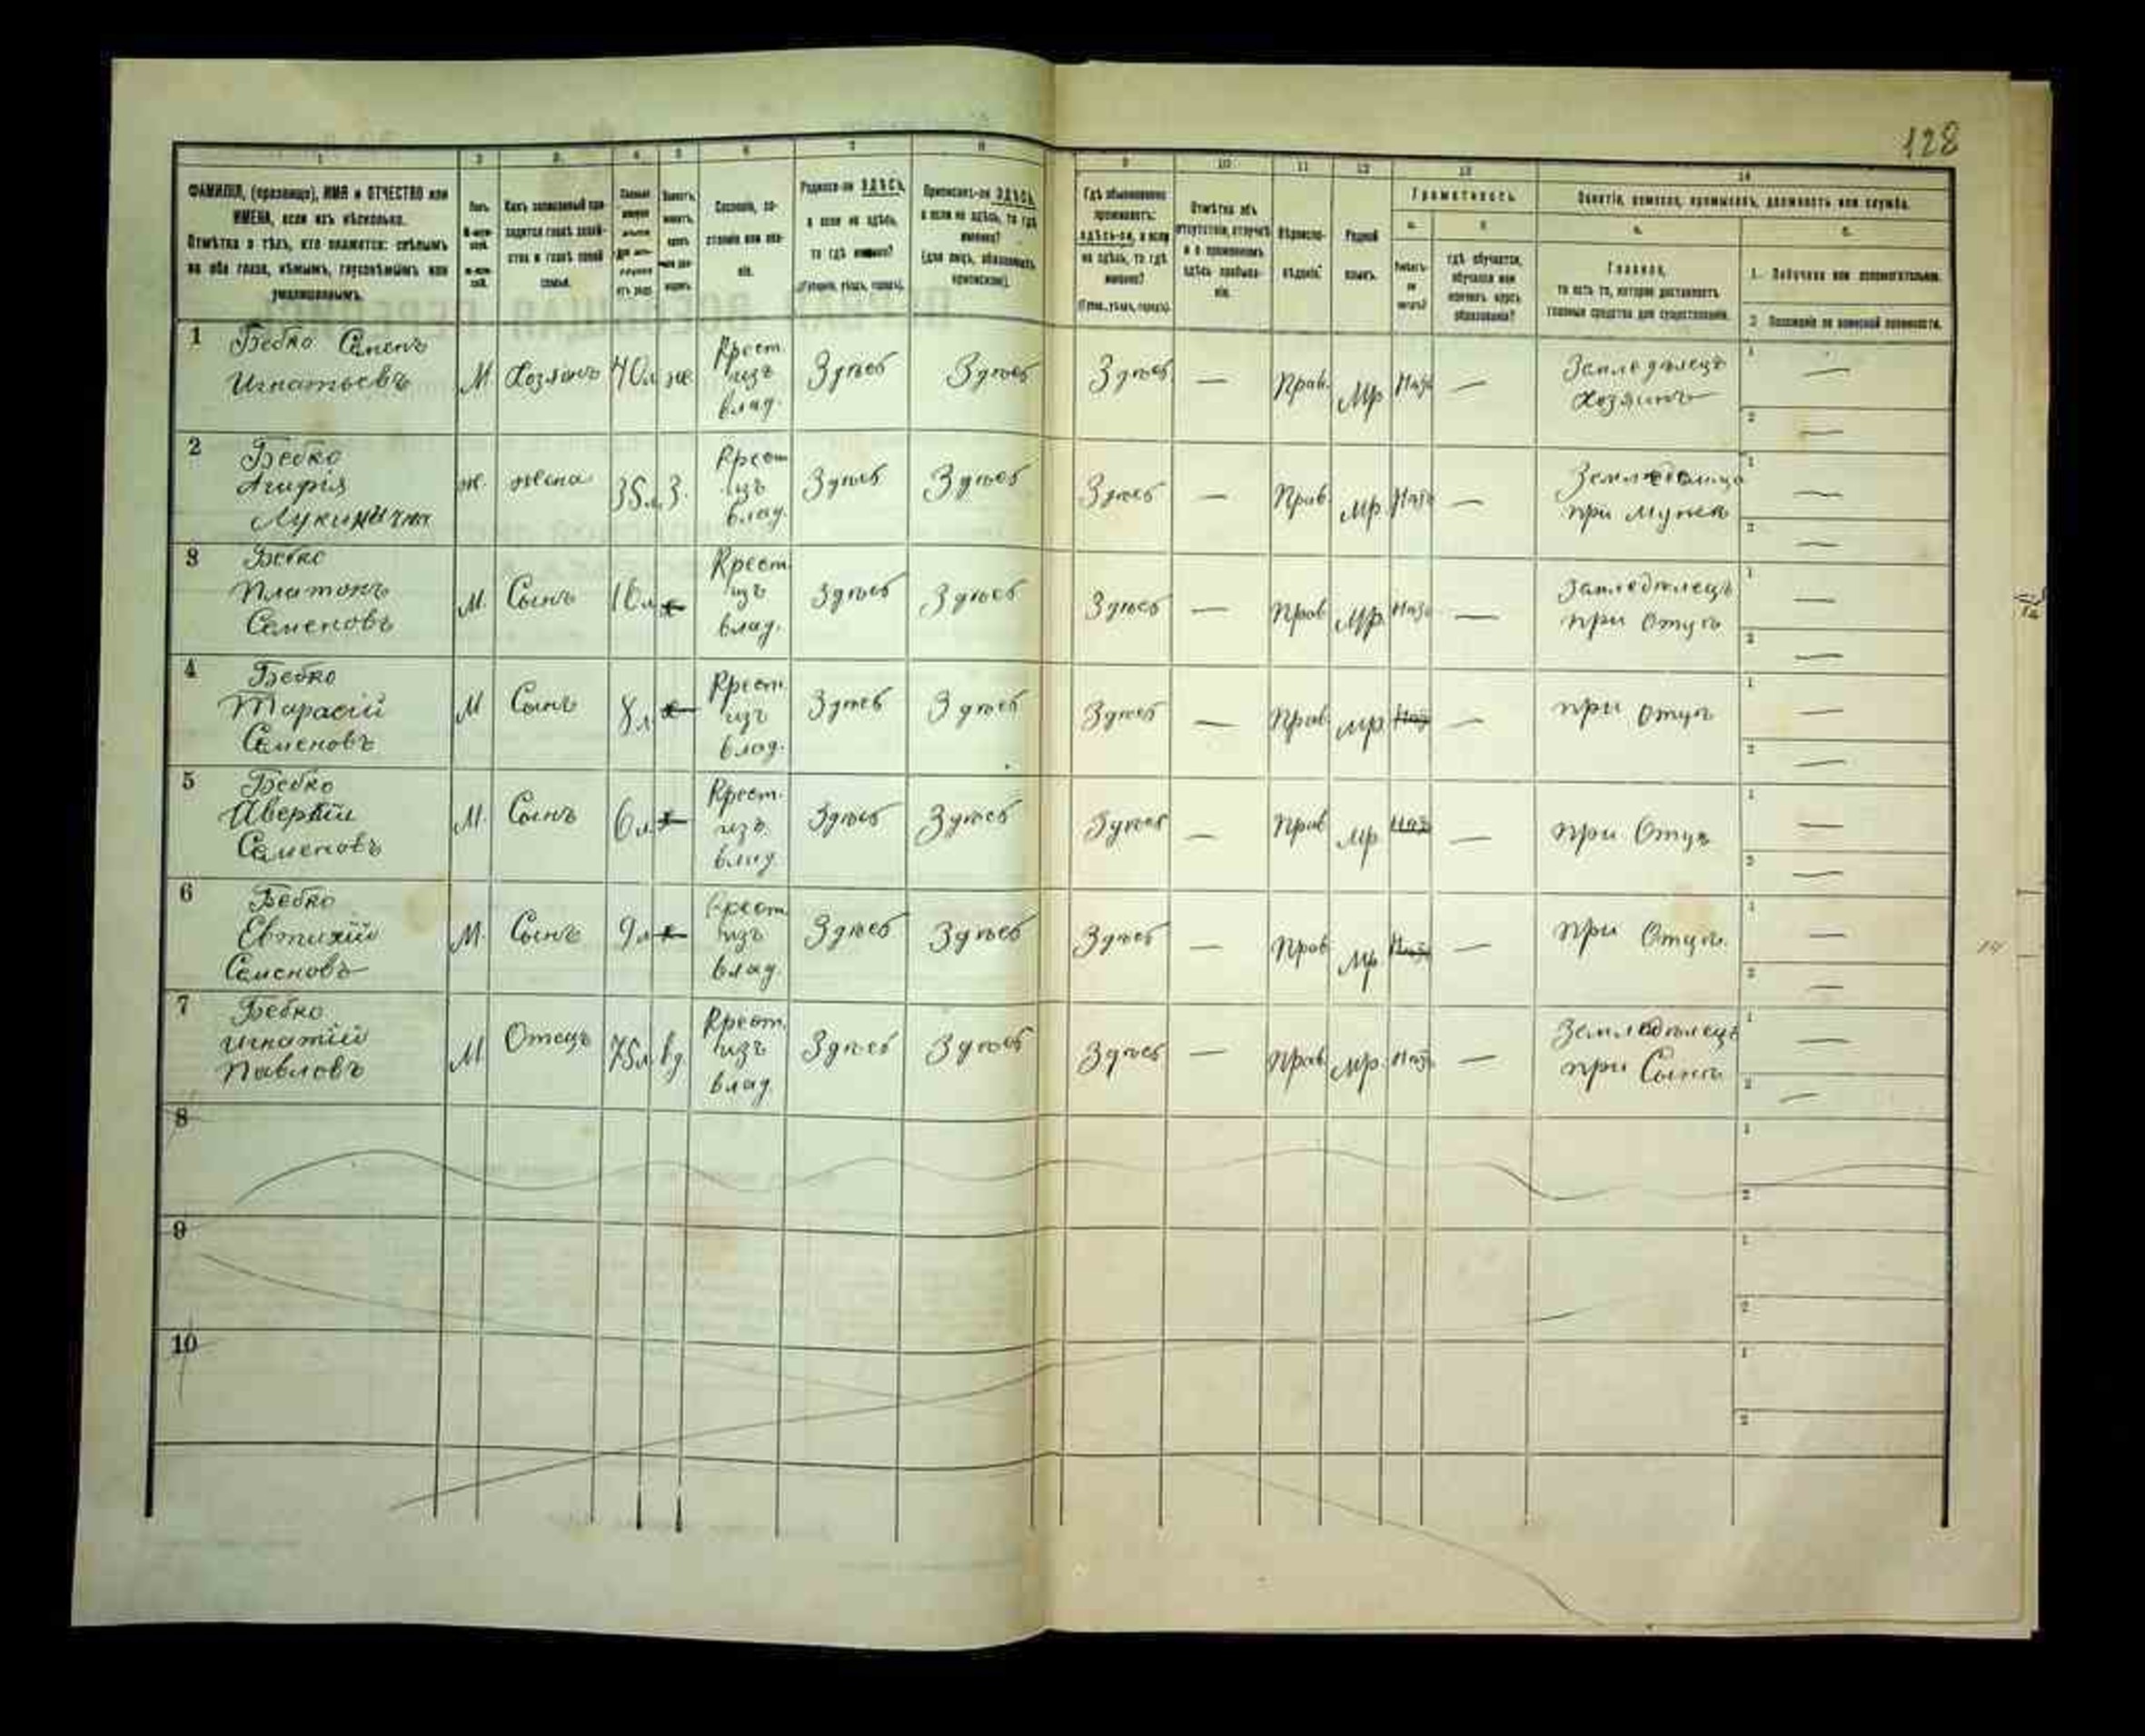 128
1
2
3.
4
5
6
7
8
9
10
11
12
13
14
ФАМИЛІЯ, (прозвище), ИМЯ и ОТЧЕСТВО или
ИМЕНА, если ихъ нѣсколько.
Отмѣтка о тѣхъ, кто окажется: слѣпымъ
на оба глаза, нѣмымъ, глухонѣмымъ или
умалишеннымъ.
Полъ.
Какъ записанный при-
ходится главѣ хозяй-
ства и главѣ своей
семьи.
Сословіе, со-
стояніе или зва-
ніе.
Родился-ли ЗДѢСЬ,
а если не здѣсь,
то гдѣ именно?
(Губернія, уѣздъ, городъ).
Приписанъ-ли ЗДѢСЬ,
а если не здѣсь, то гдѣ
именно?
(для лицъ, обязанныхъ
припискою).
Гдѣ обыкновенно
проживаетъ:
здѣсь-ли, а если
не здѣсь, то гдѣ
именно?
(Губ., уѣздъ, городъ).
Отмѣтка объ
отсутствіи, отлучкѣ
и о временномъ
здѣсь пребыва-
ніи.
Вѣроиспо-
вѣданіе.
Родной
языкъ.
Грамотность.
а.
Умѣетъ-
ли
читать?
б.
гдѣ обучается,
обучался или
кончилъ курсъ
образованія?
Занятіе, ремесло, промыселъ, должность или служба.
а.
Главное,
то есть то, которое доставляетъ
главныя средства для существованія.
б.
1. Побочное или вспомогательное.
2 Положеніе по воинской повинности.
1 Бебко Семенъ
Игнатьевъ
М. Хозяинъ 40л же Крест. изъ влад. Здѣсь Здѣсь Здѣсь — Прав. Мр —
Земледѣлецъ
Хозяинъ
1 —
2 —
2 Бебко
Лукинична
ж. жена 35л З. Крест изъ влад. Здѣсь Здѣсь Здѣсь — Прав. Мр —
при Мужѣ
1 —
2 —
3 Бебко
Платонъ
Семеновъ
М. Сынъ Крест изъ влад. Здѣсь Здѣсь Здѣсь — Прав Мр. —
Земледѣлецъ
при Отцѣ
1 —
2 —
4 Бебко
Тарасій
Семеновъ
М Сынъ 8л Крест. изъ влад. Здѣсь Здѣсь Здѣсь — Прав Мр. —
при Отцѣ
1 —
2 —
5 Бебко
Аверкій
Семеновъ
М. Сынъ 6л Крест. изъ влад Здѣсь Здѣсь Здѣсь — Прав Мр —
при Отцѣ
1 —
2 —
6 Бебко
Евтихій
Семеновъ
М. Сынъ 9л Крест изъ влад. Здѣсь Здѣсь Здѣсь — Прав Мр —
при Отцѣ
1 —
2 —
7 Бебко
Игнатій
Павловъ
М Отецъ 75л вд Крест. изъ влад Здѣсь Здѣсь Здѣсь — Прав Мр. —
Земледѣлецъ
при Сынѣ
1 —
2 —
8
1
2
9
1
2
10
1
2